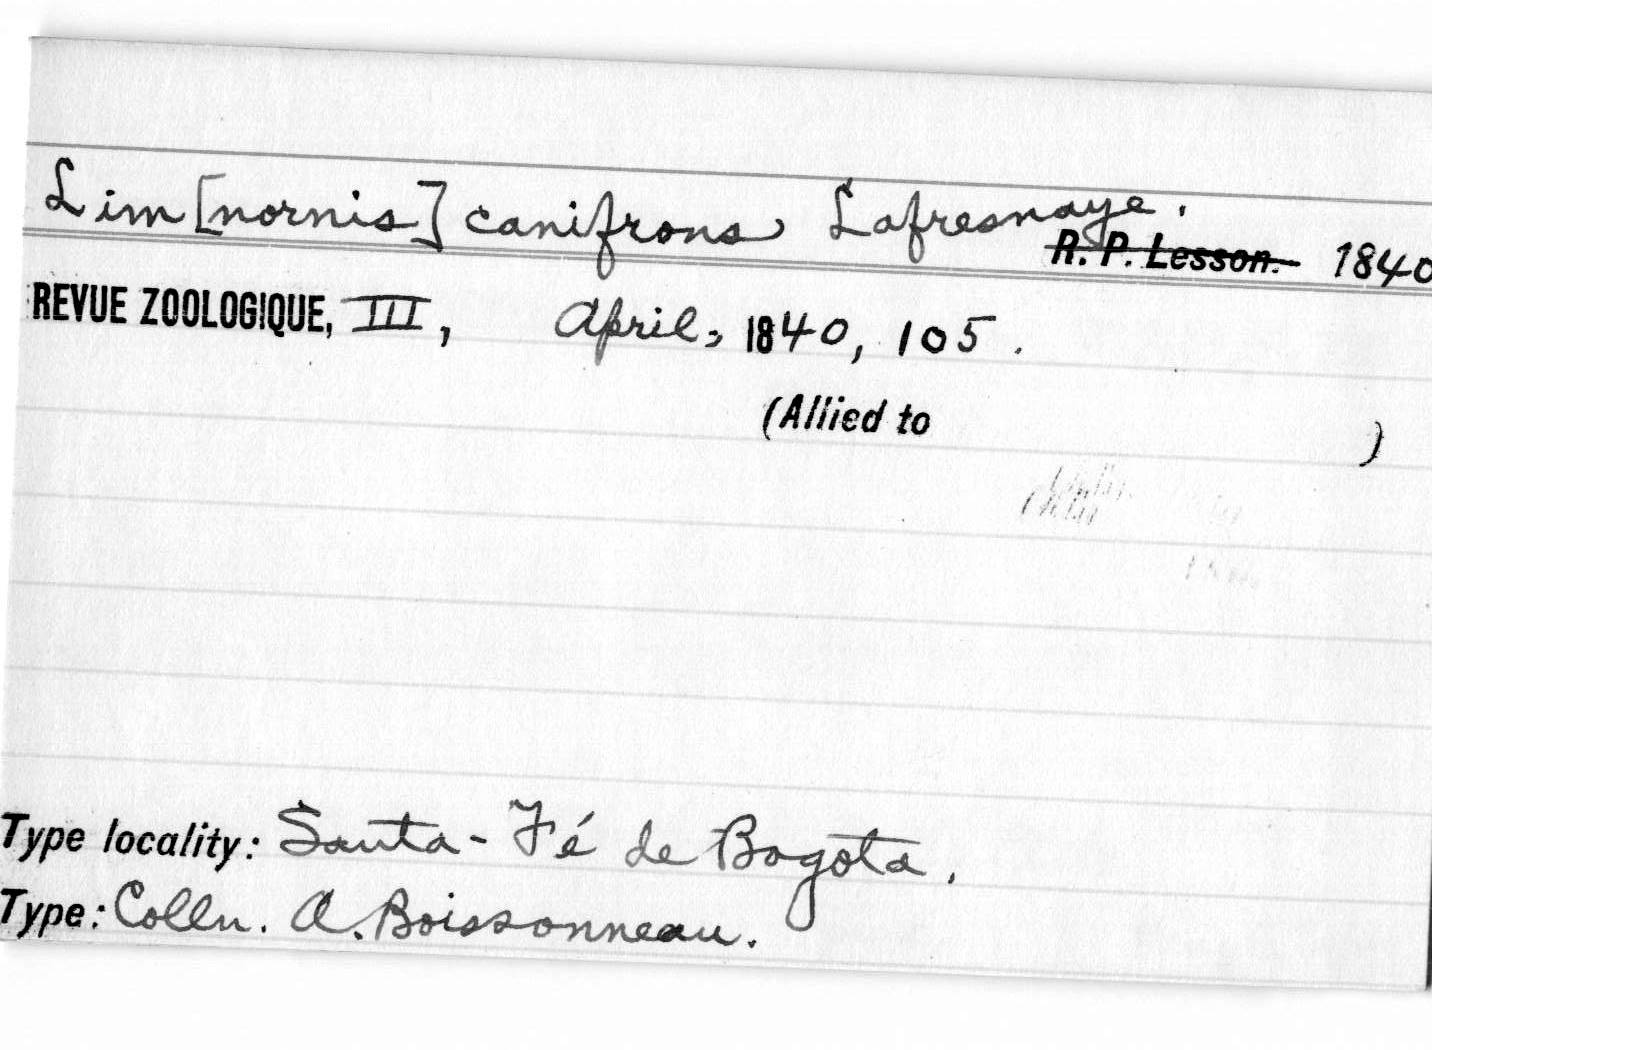 Lim[nornis] canifrons Lafresnaye.
R. P. Lesson. 1840
REVUE ZOOLOGIQUE, III, April, 1840, 105.
(Allied to )
Type locality: Santa-Fé de Bogota.
Type: Colln. A. Boissonneau.